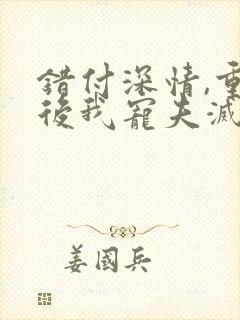 错付深情,重
後我寵夫滅
姜國兵